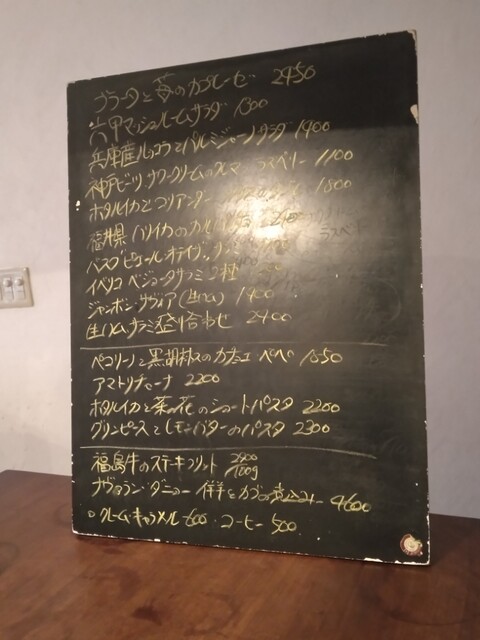 ブラータと苺のカプレーゼ 2450
六甲マッシュルームサラダ 1300
兵庫産ルッコラとパルミジャーノサラダ 1400
神戸ビーツ サワークリームの ラズベリー 1100
ホタルイカとコリアンダー 1800
福井県 ハリイカのカルパッチョ
イベリコ ベジョータサラミ 2種
ジャンボン・サヴォア (生ハム) 1900
生ハム、サラミ盛り合わせ 2900
ペコリーノと黒胡椒のカチョエペペ 1850
アマトリチャーナ 2200
ホタルイカと菜の花のショートパスタ 2200
グリンピースとレモンバターのパスタ 2300
福島牛のステーキフリット 2900/100g
ナヴァランダニョー 仔羊とカブの煮込み 4600
クレームキャラメル 600・コーヒー 500